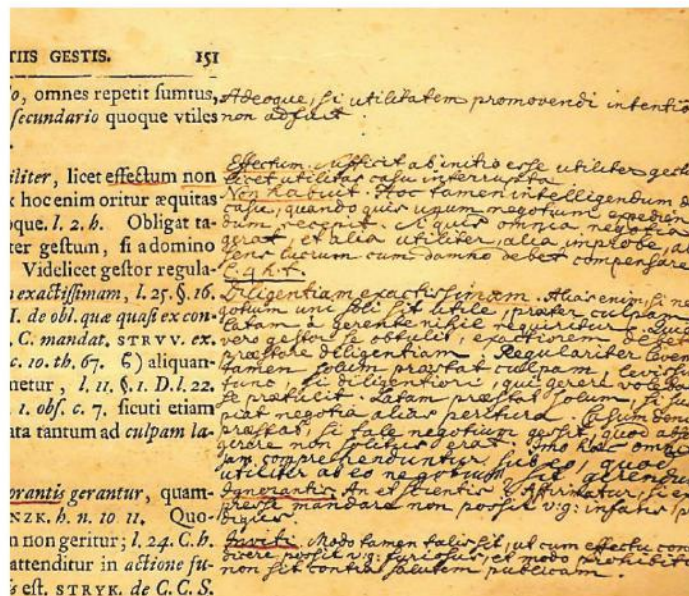 TIIS GESTIS. 151
o, omnes repetit sumtus,
secundario quoque vtiles
.
iliter, licet effectum non
x hoc enim oritur æquitas
oque. l. 2. h. Obligat ta-
ter gestum, si a domino
Videlicet gestor regula-
n exactissimam, l. 25. §. 16.
I. de obl. quæ quasi ex con-
. C. mandat. STRVV. ex.
c. 10. th. 67. ζ) aliquan-
netur, l. 11. §. 1. D. l. 22.
1. obs. c. 7. sicuti etiam
ata tantum ad culpam la-
orantis gerantur, quam-
NZK. h. n. 10 11. Quo-
n non geritur; l. 24. C. h.
attenditur in actione fu-
s est. STRYK. de C. C. S.
Adeoque, si utilitatem promovendi intentio
non adfuit.
Effectum. Sufficit ab initio esse utiliter gestu
licet utilitas casu interrupta
Non habuit. Hoc tamen intelligendum d
casu, quando quis unum negotium expedien
dum recepit. Si quis omnia negotia
gerat, et alia utiliter, alia improbe, a
sens lucrum cum damno debet compensare
C. q. h. t.
Diligentiam exactissimam. Alias enim, si ne
gotium uni soli sit utile, præter culpam
latam à gerente nihil requiritur. Quia
vero gestor se obtulit, exactiorem debet
præstare diligentiam. Regulariter leven
tamen solum præstat culpam, levissi
tunc, si diligentiori, qui gerere voleba
se prætulit. Latam præstat solum, si su
piat negotia alias peritura. Casum deni
præstat, si tale negotium gessit, quod abs
gerere non solitus erat. Imo hoc omni
jam comprehenduntur sub eo, quod
utiliter ab eo negotium sit gerendum
Ignorantis. An et scientis? Affirmatur, si e
presse mandare non possit v: g: infans, p
digus.
Inviti. Modo tamen talis sit, ut cum effectu con
dicere possit v: g: furiosus, et modo prohibiti
non sit contra salutem publicam.